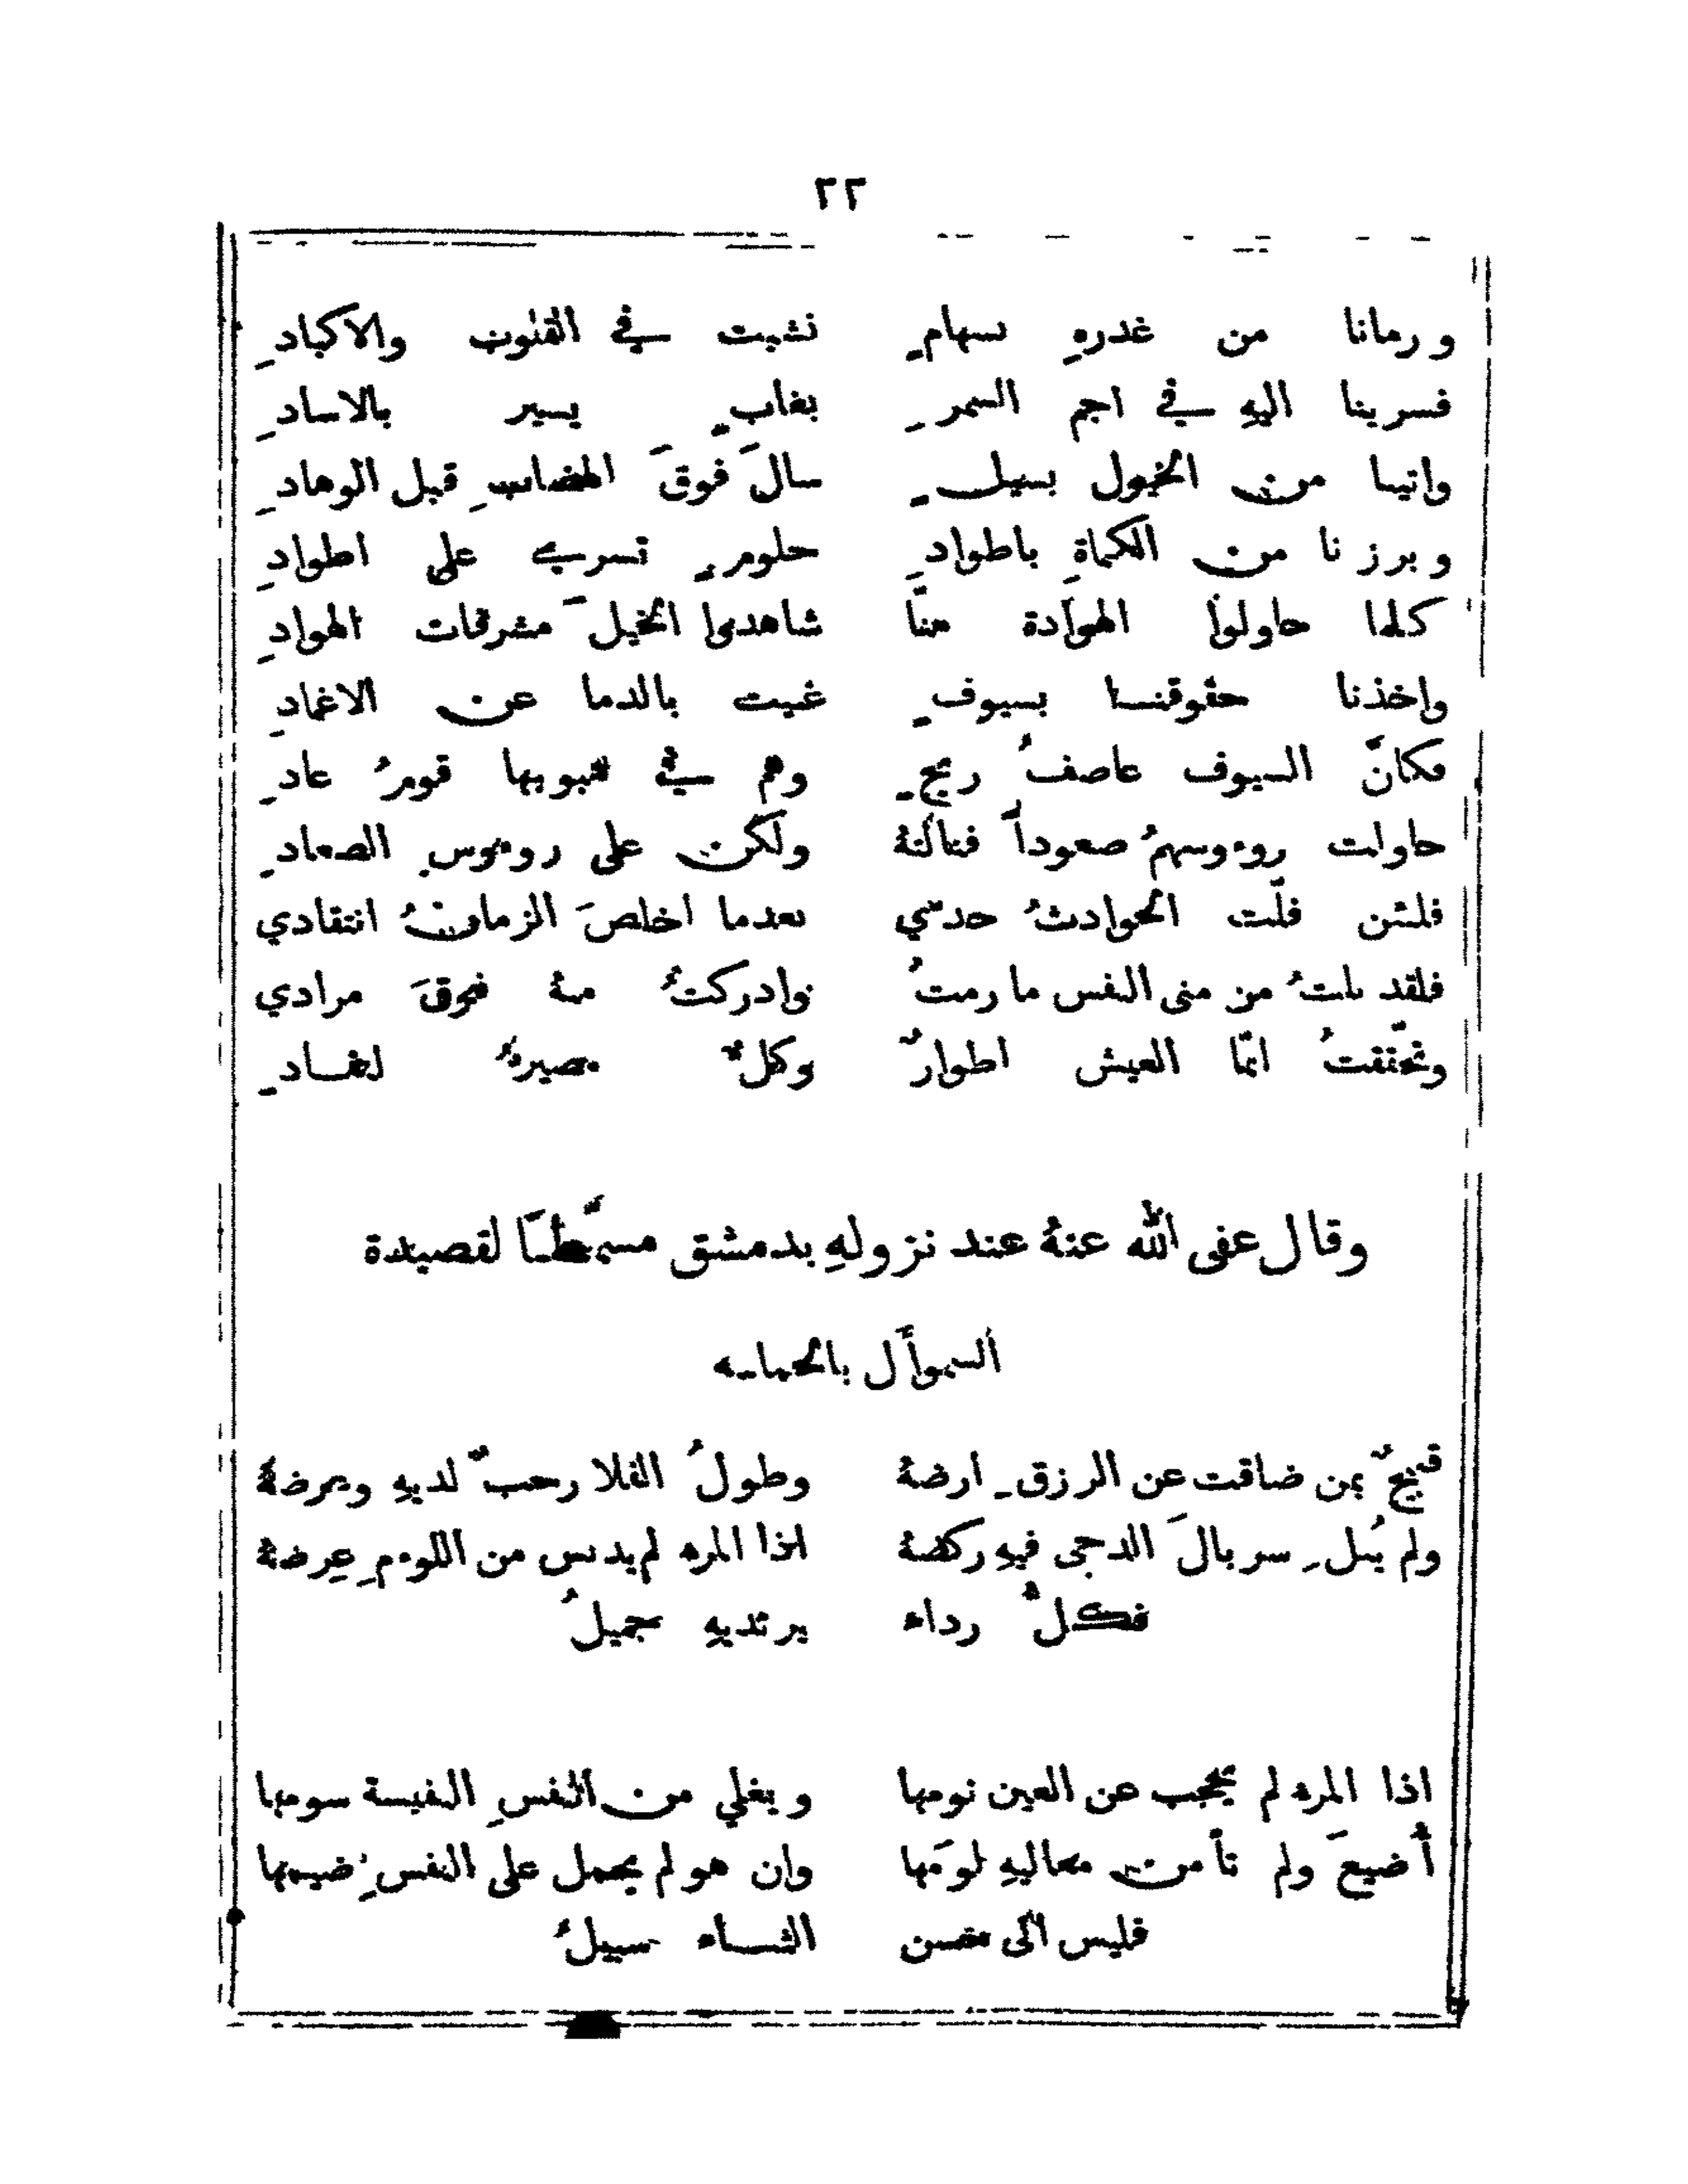 ٢٢
ورمانا من غدرهِ بسهامٍ نشبت في القلوب والاكبادِ
فسرينا اليهِ في اجم السمرِ بغابٍ يسير بالاسادِ
واتينا من الخيول بسيلٍ سالَ فوقَ الهضابِ قبل الوهادِ
وبرزنا من الكماةِ باطوادِ حلومٍ تسري على اطوادِ
كلما حاولوا الهوادة منَّا شاهدوا الخيلَ مشرفات الهوادِ
واخذنا حقوقنا بسيوفٍ غنيت بالدما عن الاغمادِ
فكانَّ السيوف عاصفُ ريحٍ وهم في هبوبها قومُ عادِ
حاولت روءوسهمُ صعوداً فنالتهُ ولكن على روءوسِ الصعادِ
فلئن فلَّت الحوادثُ حدّي بعدما اخلصَ الزمانُ انتقادي
فلقد نلتُ من منى النفس ما رمتُ وادركتُ منهُ فوقَ مرادي
وتحقّقتُ انمّا العيش اطوارٌ وكلٌّ مصيرهُ لنفادِ
وقال عفى الله عنهُ عند نزولهِ بدمشق مسمّطاً لقصيدة
السموأل بالحماسه
قبيحٌ بمن ضاقت عن الرزقِ ارضهُ وطولُ الفلا رحبٌ لديهِ وعرضهُ
ولم يُبلِ سربالَ الدجى فيهِ ركضهُ اذا المرء لم يدنس من اللوءمِ عِرضهُ
فكلُّ رداء يرتديهِ جميلُ
اذا المرء لم يحجب عن العين نومها ويغلي من النفسِ النفيسة سومها
أُضيعَ ولم تأمن معاليهِ لومَها وان هو لم يحمل على النفسِ ضيمها
فليس الى حسن الثناء سبيلُ